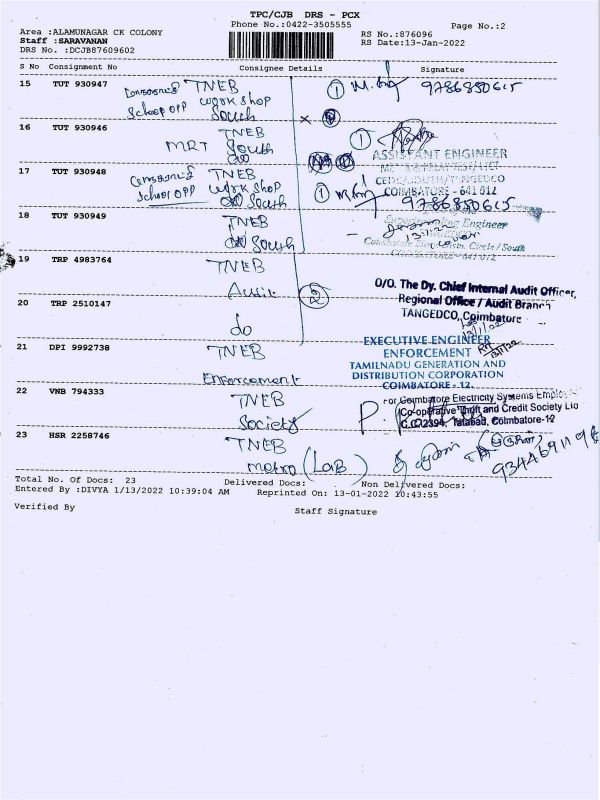 TPC/CJB DRS - PCX
Phone No.:0422-3505555
Page No.:2
Area :ALAMUNAGAR CK COLONY
Staff :SARAVANAN
DRS No. :DCJB87609602
RS No.:876096
RS Date:13-Jan-2022
S No Consignment No Consignee Details Signature
15 TUT 930947 TNEB 1 9786880615
School OPP workshop
South
16 TUT 930946 TNEB 1
MRT South
do
ASSISTANT ENGINEER
COIMBATORE - 641 012
17 TUT 930948 TNEB
School OPP workshop 1 9786880615
South
18 TUT 930949 TNEB
South
Engineer
19 TRP 4983764 TNEB
Audit 2
O/O. The Dy. Chief Internal Audit Officer,
Regional Office / Audit Branch
TANGEDCO, Coimbatore
20 TRP 2510147
do
21 DPI 9992738 TNEB
Enforcement
EXECUTIVE ENGINEER
ENFORCEMENT
TAMILNADU GENERATION AND
DISTRIBUTION CORPORATION
COIMBATORE - 12.
22 VNB 794333 TNEB
Society
For Coimbatore Electricity Systems
Co-operative Thrift and Credit Society Ltd
C.C.2394, Tatabad, Coimbatore-12
23 HSR 2258746 TNEB
metro (LAB)
Total No. Of Docs: 23 Delivered Docs: Non Delivered Docs:
Entered By :DIVYA 1/13/2022 10:39:04 AM Reprinted On: 13-01-2022 10:43:55
Verified By Staff Signature